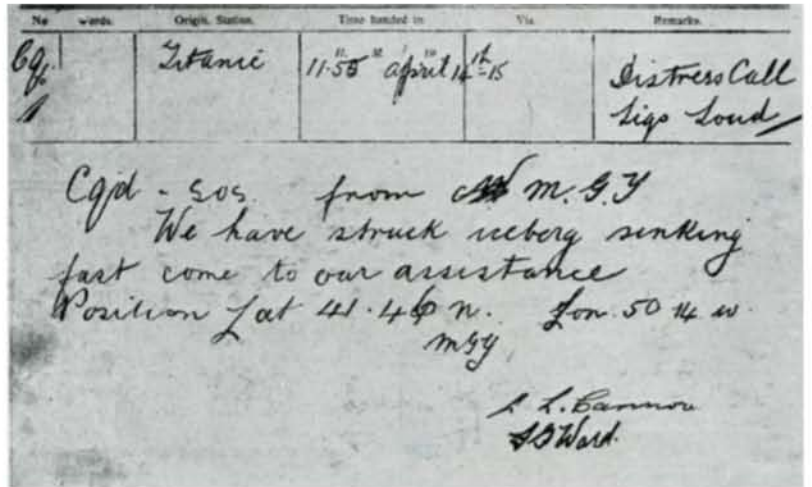 No words. Origin. Station. Time handed in Via. Remarks.
Cqd Titanic 11.55 April 14th-15 Distress Call
1 Sigs Loud
Cqd - SOS. from M.G.Y
We have struck iceberg sinking
fast come to our assistance
Position Lat 41.46 n. Lon. 50 14 w.
MGY
L. Cannon
Ward.